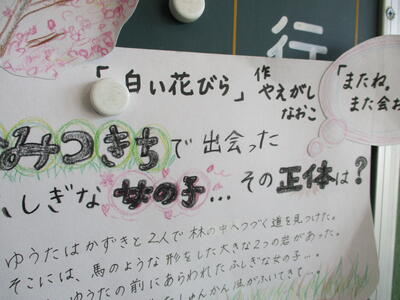 行
「白い花びら」作
やえがし
なおこ
「またね。
また会お
みつきち で 出会った
しぎな 女の子… その 正体は？
ゆうたはかずきと2人で林の中へつづく道を見つけた。
そこには、馬のような形をした大きな2つの岩があった。
ゆうたの前にあらわれたふしぎな女の子…。
しゅんかん